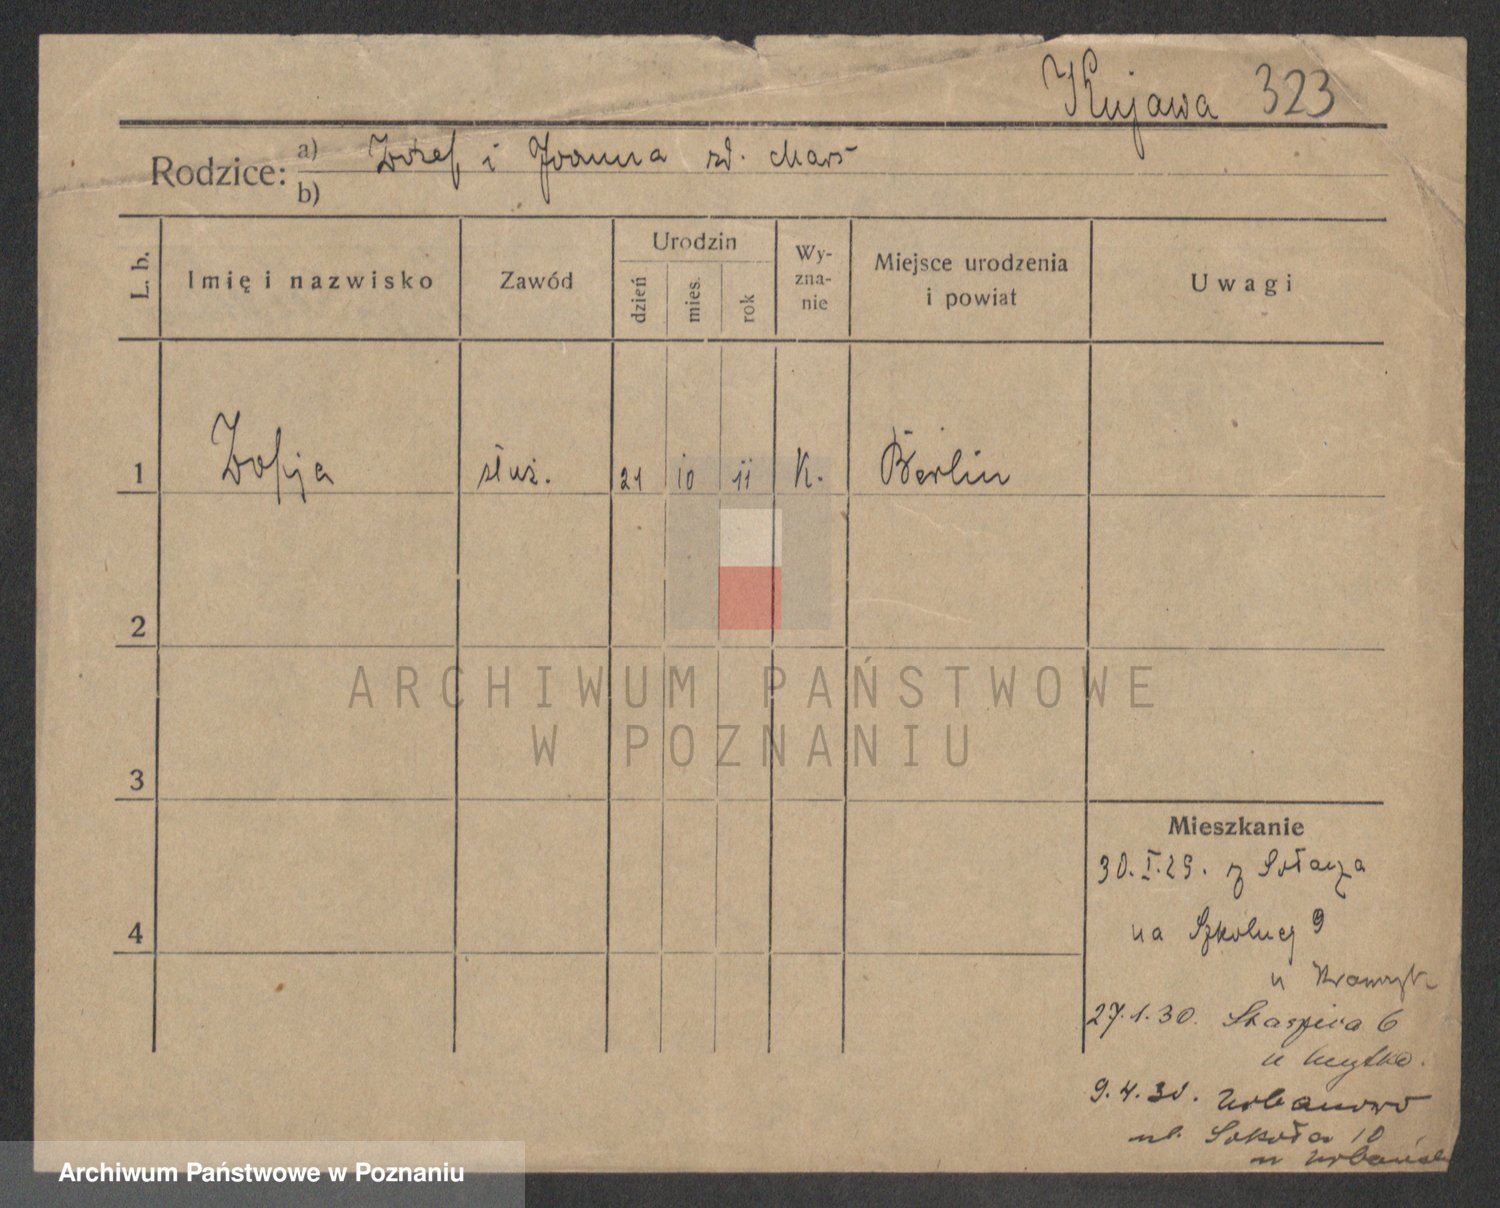 Kujawa 323
Rodzice: a) Józef i Joanna zd. Marś
b)
L. b.
Imię i nazwisko
Zawód
Urodzin
dzień
mies.
rok
Wy-
zna-
nie
Miejsce urodzenia
i powiat
Uwagi
1 Zofja służ. 21 10 11 K. Berlin
2
3
4
Mieszkanie
30.I.29. z Sołacza
na Szkolnej 9
u
27.1.30. Staszica 6
u
9.4.30. Urbanowo
ul. Sokoła 10
u
ARCHIWUM PAŃSTWOWE
W POZNANIU
Archiwum Państwowe w Poznaniu